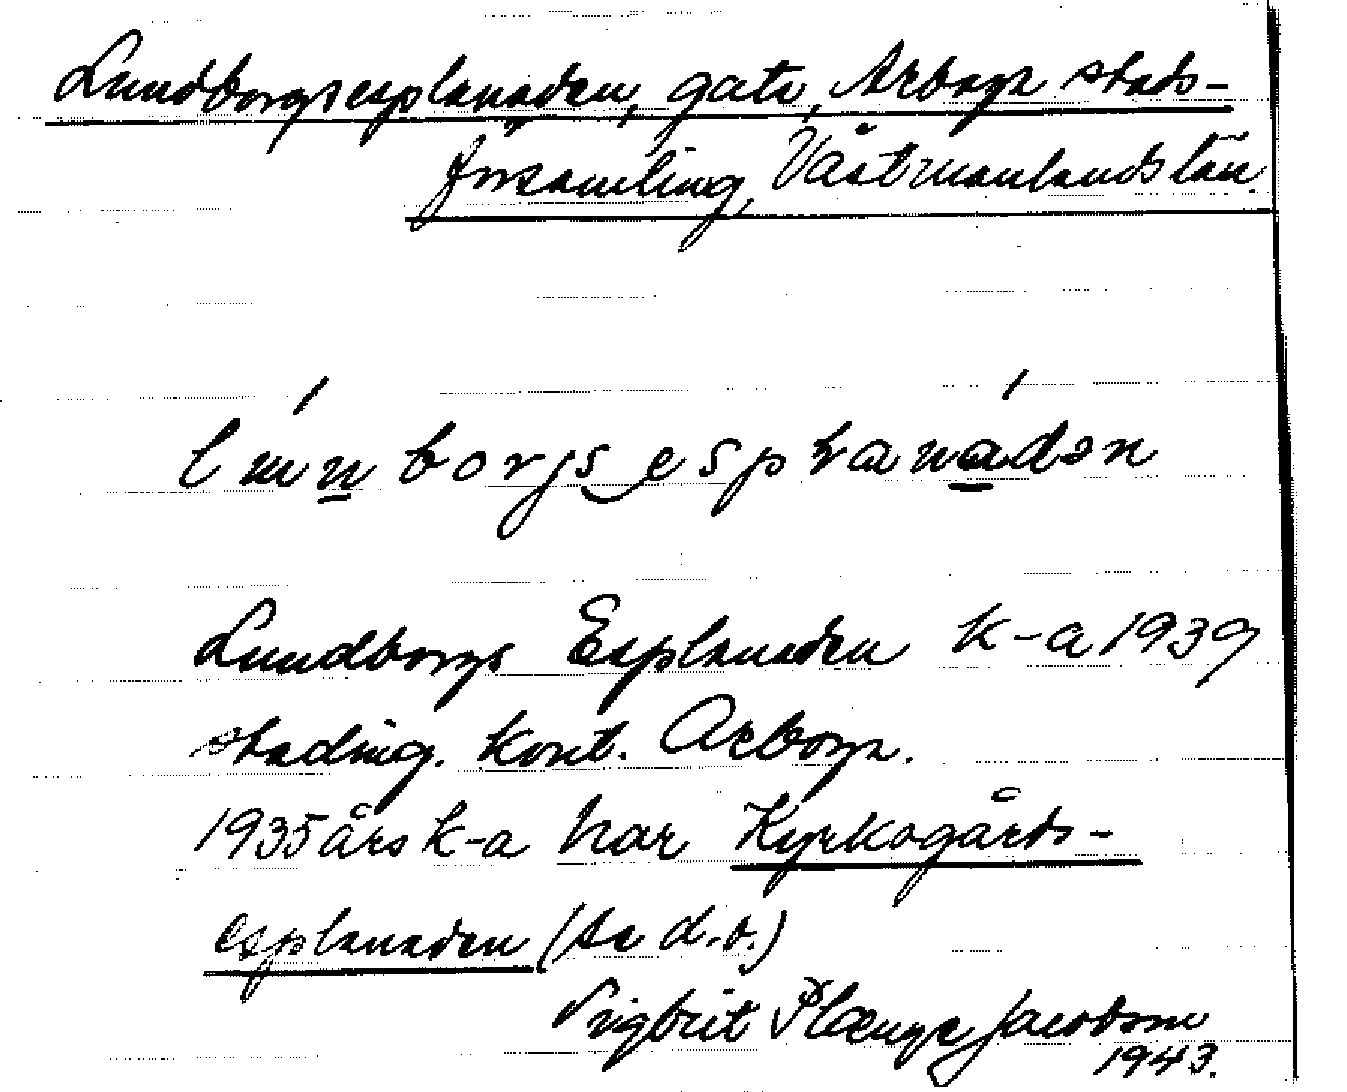 Lundborgsesplanaden, gata, Arboga stads-
församling, Västmanlands län.
lunborjsesplanadən
Lundborgs Esplanaden k-a 1939
stading. kont. Arboga.
1935 års k-a har Kyrkogårds-
esplanaden (se d.o.)
Vigbrit Plænge Jacobson
1943.